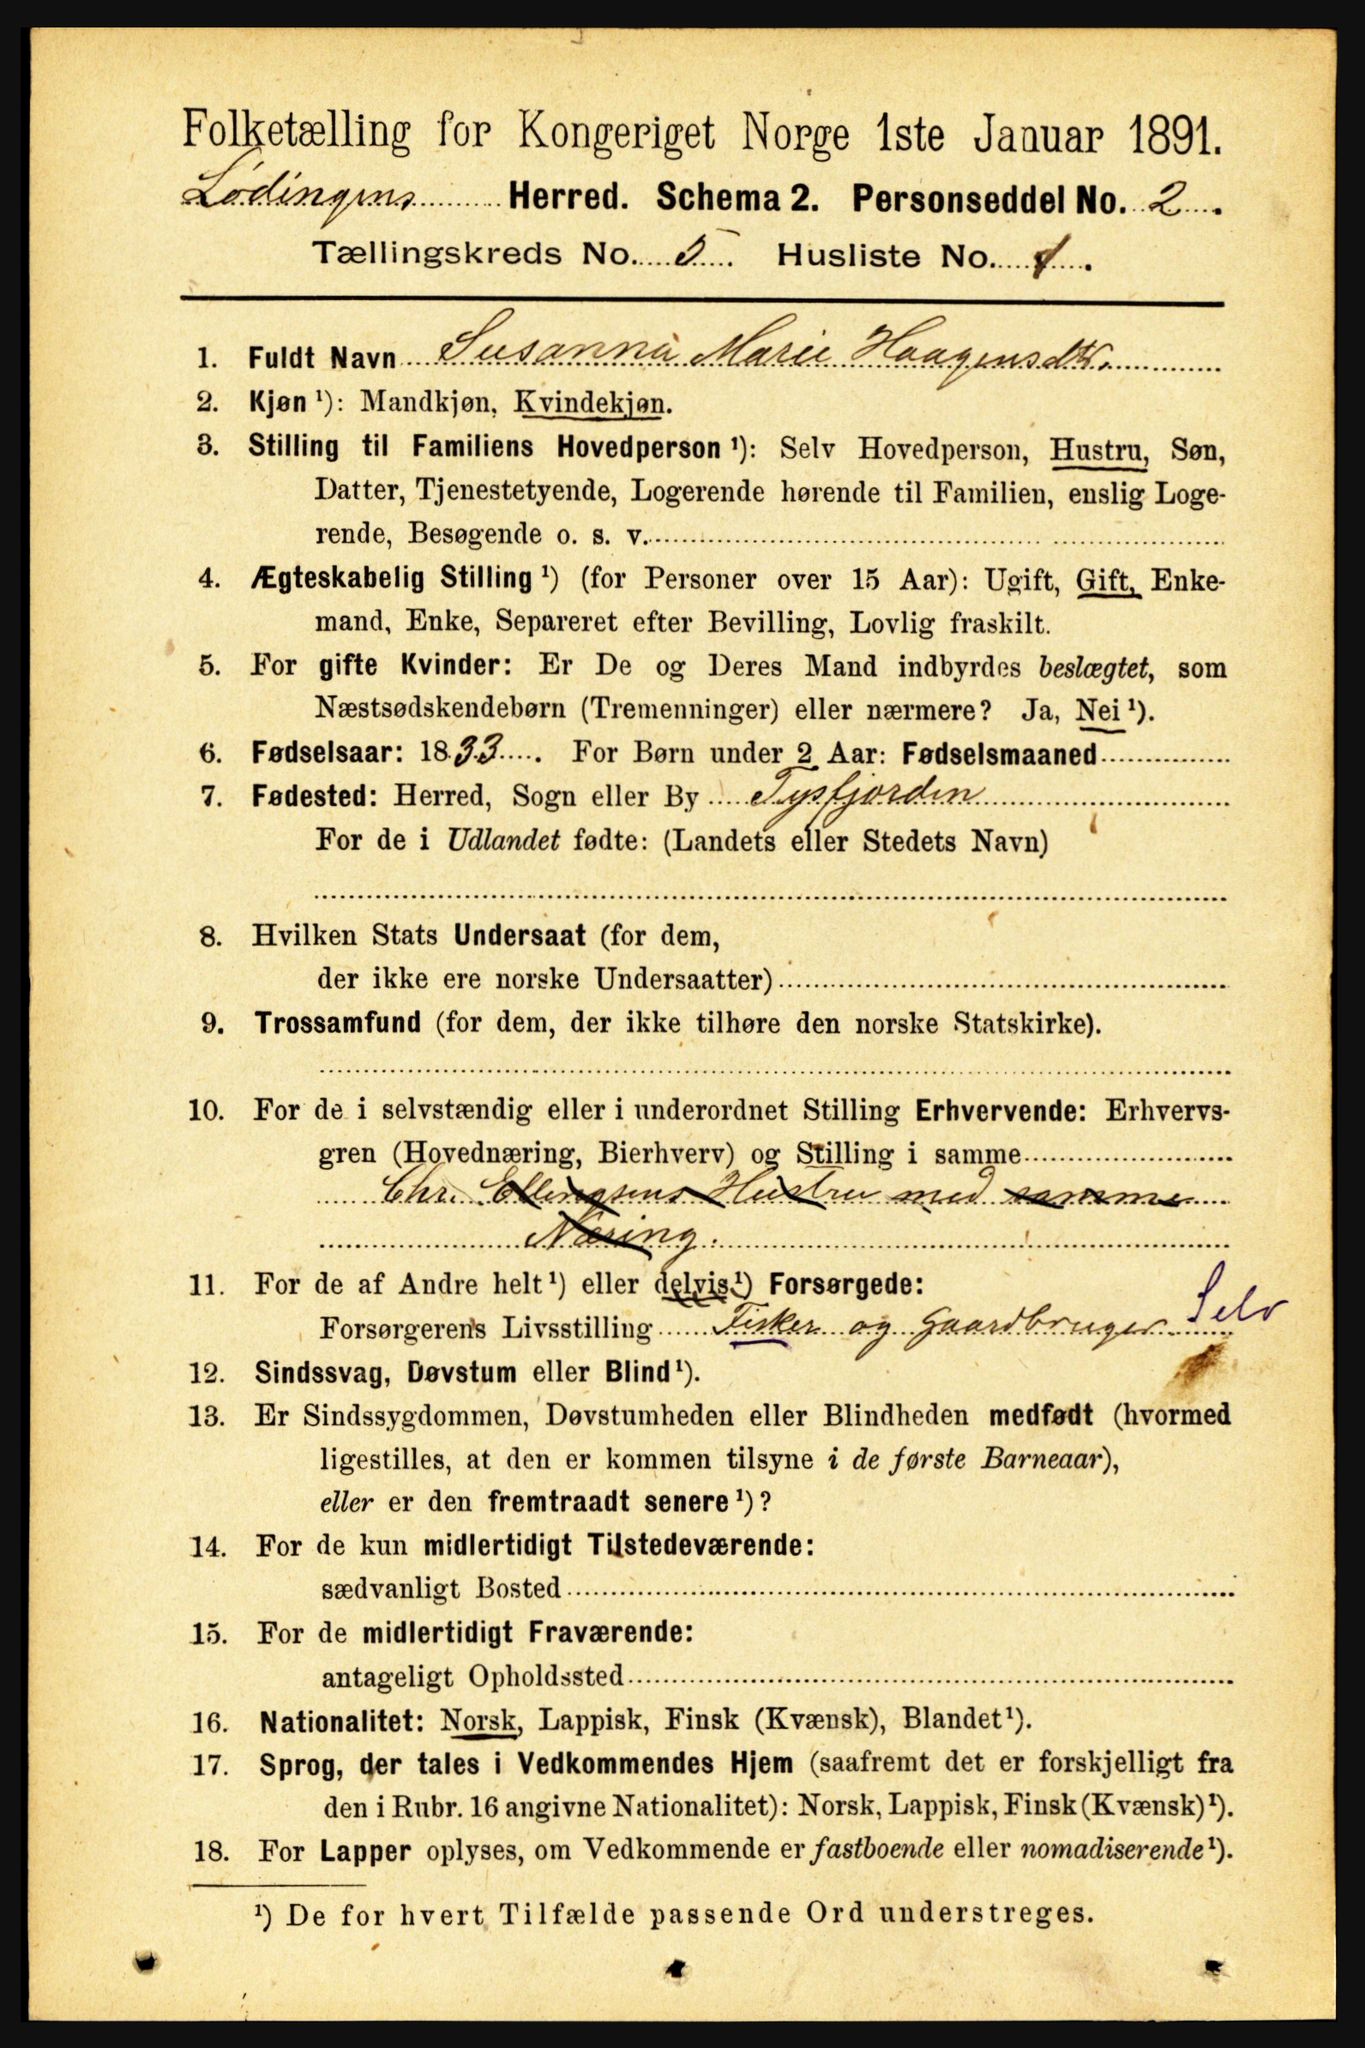 Folketælling for Kongeriget Norge 1ste Januar 1891.
Lødingens Herred. Schema 2. Personseddel No. 2.
Tællingskreds No. 5. Husliste No. 1.
1. Fuldt Navn Susanna Marie Haagensdtr.
2. Kjøn ¹): Mandkjøn, Kvindekjøn.
3. Stilling til Familiens Hovedperson ¹): Selv Hovedperson, Hustru, Søn,
Datter, Tjenestetyende, Logerende hørende til Familien, enslig Loge-
rende, Besøgende o. s. v.
4. Ægteskabelig Stilling ¹) (for Personer over 15 Aar): Ugift, Gift, Enke-
mand, Enke, Separeret efter Bevilling, Lovlig fraskilt.
5. For gifte Kvinder: Er De og Deres Mand indbyrdes beslægtet, som
Næstsødskendebørn (Tremenninger) eller nærmere? Ja, Nei ¹).
6. Fødselsaar: 1833. For Børn under 2 Aar: Fødselsmaaned
7. Fødested: Herred, Sogn eller By Tysfjorden
For de i Udlandet fødte: (Landets eller Stedets Navn)
8. Hvilken Stats Undersaat (for dem,
der ikke ere norske Undersaatter)
9. Trossamfund (for dem, der ikke tilhøre den norske Statskirke).
10. For de i selvstændig eller i underordnet Stilling Erhvervende: Erhvervs-
gren (Hovednæring, Bierhverv) og Stilling i samme
Chr. Ellingsens Hustru med samme
Næring.
11. For de af Andre helt ¹) eller delvis ¹) Forsørgede:
Forsørgerens Livsstilling Fisker og Gaardbruger Selv
12. Sindssvag, Døvstum eller Blind ¹).
13. Er Sindssygdommen, Døvstumheden eller Blindheden medfødt (hvormed
ligestilles, at den er kommen tilsyne i de første Barneaar),
eller er den fremtraadt senere ¹)?
14. For de kun midlertidigt Tilstedeværende:
sædvanligt Bosted
15. For de midlertidigt Fraværende:
antageligt Opholdssted
16. Nationalitet: Norsk, Lappisk, Finsk (Kvænsk), Blandet ¹).
17. Sprog, der tales i Vedkommendes Hjem (saafremt det er forskjelligt fra
den i Rubr. 16 angivne Nationalitet): Norsk, Lappisk, Finsk (Kvænsk) ¹).
18. For Lapper oplyses, om Vedkommende er fastboende eller nomadiserende ¹).
¹) De for hvert Tilfælde passende Ord understreges.